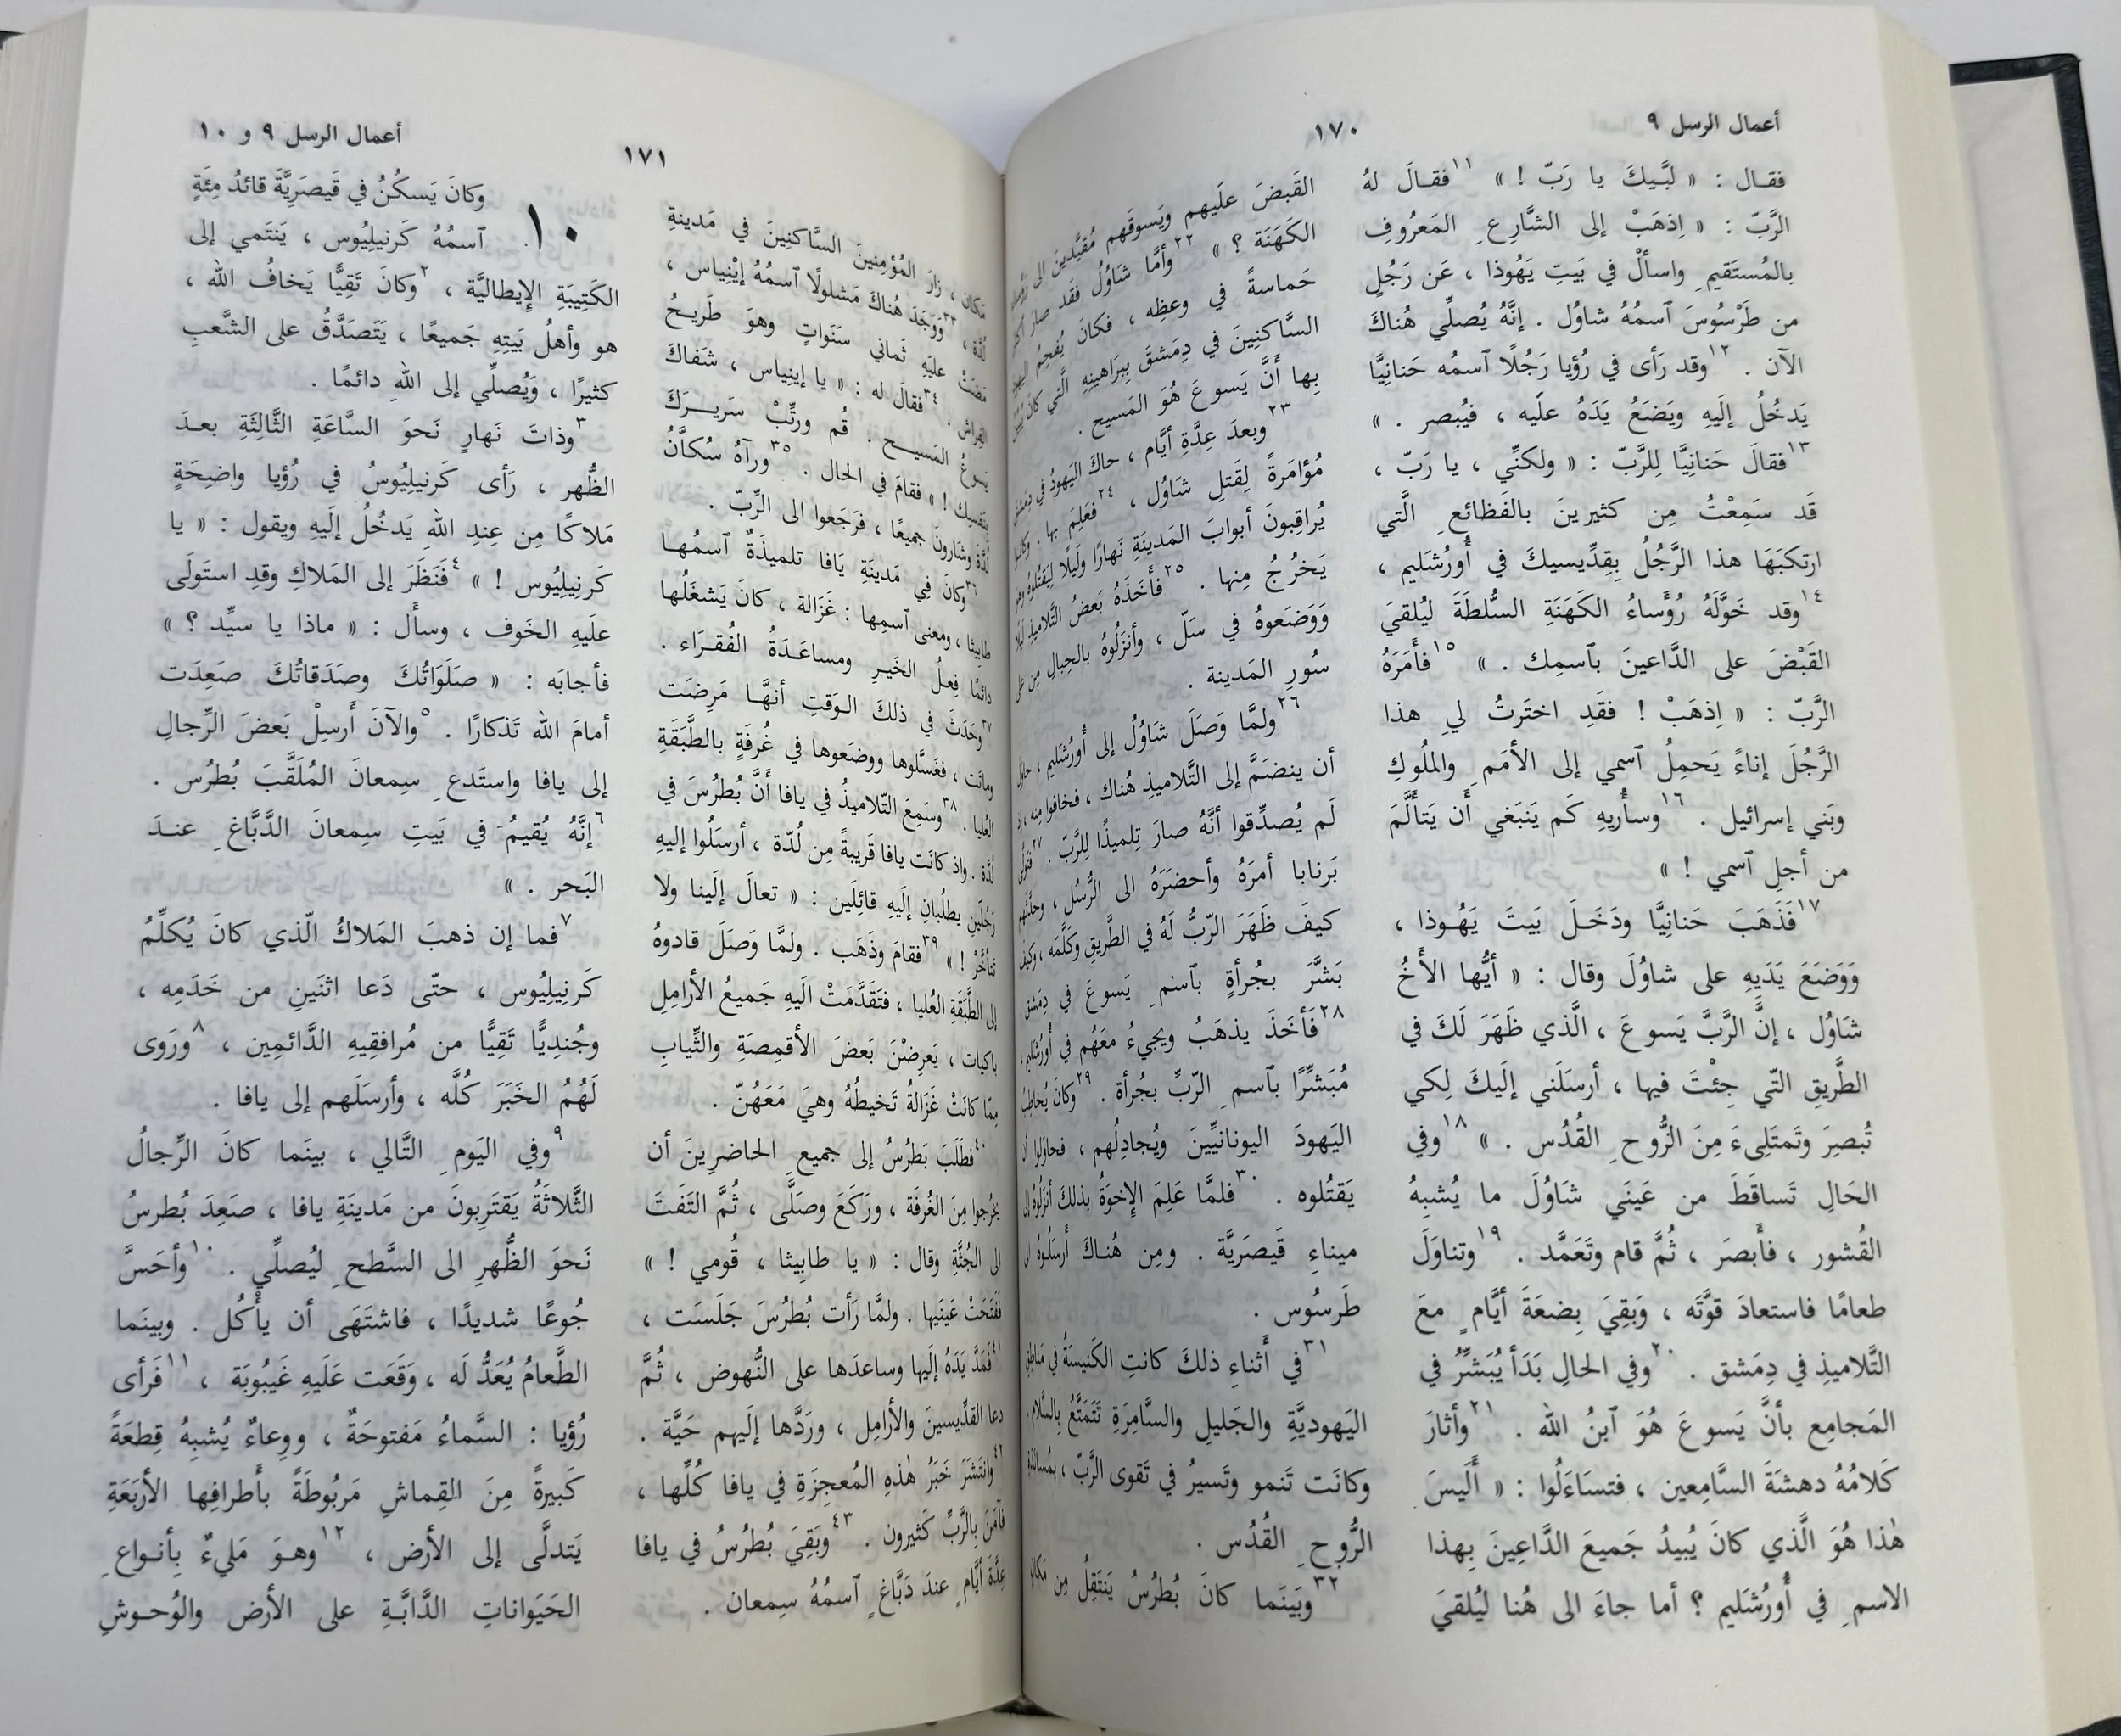 أعمال الرسل ٩
١٧٠
فقـال : « لبَّـيكَ يا رَبّ ! » ١١فقـالَ لهُ
الرَّبّ : « اِذهَبْ إلى الشَّارِعِ المَعرُوفِ
بالمُستَقيمِ واسألْ في بَيتِ يَهُوذا ، عَن رَجُلٍ
من طَرْسُوسَ ٱسمُهُ شاوُل . إنَّهُ يُصلِّي هُناكَ
الآن . ١٢وقد رَأى في رُؤيا رَجُلًا ٱسمُه حَنانِيَّا
يَدخُلُ إلَيهِ ويَضَعُ يَدَهُ علَيه ، فيُبصر . »
١٣فقالَ حَنانِيَّا لِلرَّبّ : « ولكنِّي ، يا رَبّ ،
قَد سَمِعْتُ مِن كثيرينَ بالفَظائعِ الَّتي
ارتكبَهَا هذا الرَّجُلُ بِقِدِّيسيكَ في أُورُشَليم ،
١٤وقد خَوَّلَهُ رُؤَساءُ الكَهَنَةِ السُّلطَةَ ليُلقيَ
القَبْضَ على الدَّاعينَ بٱسمِك . » ١٥فأَمَرَهُ
الرَّبّ : « اِذهَبْ ! فقَدِ اختَرتُ لي هذا
الرَّجُلَ إناءً يَحمِلُ ٱسمي إلى الأمَمِ والملُوكِ
وبَني إسرائيل . ١٦وسأُريهِ كَم يَنبَغي أَن يَتألَّمَ
من أجلِ ٱسمي ! »
١٧فَذَهَبَ حَنانِيَّا ودَخَـلَ بَيتَ يَهُـوذا ،
وَوَضَعَ يَدَيهِ على شاوُلَ وقال : « أيُّها الأَخُ
شَاوُل ، إنَّ الرَّبَّ يَسوعَ ، الَّذي ظَهَرَ لَكَ في
الطَّريقِ التّي جِئْتَ فيها ، أرسَلَني إلَيكَ لِكي
تُبصِرَ وتَمتَلِىءَ مِنَ الرُّوحِ القُدُس . » ١٨وفي
الحَالِ تَساقَطَ من عَينَي شَاوُلَ ما يُشبِهُ
القُشور ، فأَبصَرَ ، ثُمَّ قام وتَعَمَّد . ١٩وتناوَلَ
طعامًا فاستعادَ قوَّتَه ، وَبَقِيَ بِضعَةَ أيَّامٍ معَ
التَّلاميذِ في دِمَشق . ٢٠وفي الحالِ بَدَأ يُبَشِّرُ في
المَجامِعِ بأنَّ يَسوعَ هُوَ ٱبنُ الله . ٢١وأثارَ
كَلامُهُ دهشَةَ السَّامِعين ، فتسَاءَلُوا : « أَلَيسَ
هٰذا هُوَ الَّذي كانَ يُبيدُ جَميعَ الدَّاعِينَ بِهذا
الاسمِ في أُورُشَليم ؟ أما جاءَ الى هُنا ليُلقيَ
القَبضَ علَيهم ويَسوقَهم مُقيَّدينَ الى رُؤساءِ
الكَهَنَة ؟ » ٢٢وأمَّا شَاوُلُ فقَد صارَ أكثَرَ
حَماسةً في وعظِه ، فكانَ يُفحِمُ اليهودَ
السَّاكنِينَ في دِمَشقَ بِبَراهينِهِ الَّتي كانَ يُبيِّنُ
بِها أَنَّ يَسوعَ هُوَ المَسيح .
٢٣وبعدَ عِدَّةِ أيَّام ، حاكَ اليَهودُ في دِمَشقَ
مُؤامَرةً لِقَتلِ شَاوُل ، ٢٤فعَلِمَ بها . وكانوا
يُراقِبونَ أبوابَ المَدينَةِ نَهارًا ولَيلًا لِيَقتُلوهُ وهو
يَخرُجُ مِنها . ٢٥فأَخَذَهُ بَعضُ التَّلاميذِ لَيلًا
وَوَضَعوهُ في سَلّ ، وأنزَلُوهُ بالحِبالِ مِن على
سُورِ المَدينة .
٢٦ولمَّا وَصَلَ شَاوُلُ إلى أُورُشَليم ، حاوَلَ
أن ينضَمَّ إلى التَّلاميذِ هُناك ، فخافوا مِنه ، إذ
لَم يُصدِّقوا أنَّهُ صارَ تِلميذًا لِلرَّبّ . ٢٧فتولَّى
بَرنابا أمرَهُ وأحضَرَهُ الى الرُّسُل ، وحدَّثَهم
كيفَ ظَهَرَ الرّبُّ لَهُ في الطَّريقِ وكَلَّمَه ، وكيفَ
بَشَّرَ بجُرأةٍ بٱسمِ يَسوعَ في دِمَشق .
٢٨فَأَخَذَ يذهَبُ ويجيءُ معَهُم في أُورُشَليم ،
مُبَشِّرًا بٱسمِ الرّبِّ بجُرأة . ٢٩وكانَ يُخاطِبُ
اليَهودَ اليونانيِّينَ ويُجادِلُهم ، فحاوَلوا أن
يَقتُلوه . ٣٠فلمَّا عَلِمَ الإخوَةُ بذلكَ أنزَلُوهُ إلى
ميناءِ قَيصَريَّة . ومِن هُنـاكَ أرسَلُوهُ الى
طَرسُوس .
٣١في أثناءِ ذلكَ كانتِ الكَنيسَةُ في مَناطِقِ
اليَهوديَّةِ والجَليلِ والسَّامِرَةِ تَتَمَتَّعُ بِالسَّلام .
وكانَت تَنمو وتَسيرُ في تَقوى الرَّبّ ، بمُساندَةِ
الرُّوحِ القُدُس .
٣٢وبَينَما كانَ بُطرُسُ يَنتَقِلُ مِن مَكانٍ
أعمال الرسل ٩ و ١٠
١٧١
مَكان ، زارَ المُؤمِنينَ السَّاكنِينَ في مَدينةِ
لُدَّة ، ٣٣وَوَجَدَ هُناكَ مَشلولًا ٱسمُهُ إيْنِياس ،
مَضَتْ علَيهِ ثَماني سَنَواتٍ وهوَ طَريحُ
الفِراش . ٣٤فقالَ له : « يا إينِياس ، شَفاكَ
يَسوعُ المَسيـح . قُم ورتِّبْ سَريـرَكَ
بنَفسِك ! » فقامَ في الحال . ٣٥ورآهُ سُكَّانُ
لُدَّةَ وشَارونَ جميعًا ، فرَجَعوا الى الرَّبّ .
٣٦وكانَ فِي مَدينَةِ يَافا تلميذَةٌ ٱسمُهـا
طابيثا ، ومعنى ٱسمِها : غَزَالة ، كانَ يَشغَلُها
دائمًا فِعلُ الخَيرِ ومساعَـدَةُ الفُقـرَاء .
٣٧وحَدَثَ في ذلكَ الـوَقتِ أنهَّـا مَرِضَت
وماتَت ، فغَسَّلوها ووضَعوها في غُرفَةٍ بالطَّبَقَةِ
العُليا . ٣٨وسَمِعَ التَّلاميذُ في يافا أنَّ بُطرُسَ في
لُدَّة . واذ كانَت يافا قَريبةً مِن لُدّة ، أرسَلُوا إليهِ
رَجُلَينِ يطلُبانِ إلَيهِ قائِلَين : « تعالَ إلَينا ولا
تتأخَّرْ ! » ٣٩فقامَ وذَهَب . ولمَّا وَصَلَ قادوهُ
إلى الطَّبَقَةِ العُليا ، فتَقَدَّمَتْ الَيهِ جَميعُ الأرامِلِ
باكيات ، يَعرِضْنَ بَعضَ الأقمِصَةِ والثِّيابِ
مِمّا كانَتْ غَزَالةُ تَخيطُهُ وهيَ مَعَهُنّ .
٤٠فطَلَبَ بَطرُسُ إلى جميعِ الحاضرِينَ أن
يَخرُجوا مِنَ الغُرفَة ، ورَكَعَ وصَلَّى ، ثُمَّ التَفَتَ
الى الجُثَّةِ وقال : « يا طابِيثا ، قُومي ! »
فَفَتَحَتْ عَينَيها . ولمَّا رَأت بُطرُسَ جَلَسَت ،
٤١فَمَدَّ يَدَهُ إلَيها وساعدَها على النُّهوض ، ثُمَّ
دعا القدِّيسينَ والأرامِل ، ورَدَّها إلَيهم حَيَّة .
٤٢وانتَشَرَ خَبَرُ هٰذهِ المُعجِزَةِ في يافا كُلِّها ،
فآمَنَ بِالرَّبِّ كَثيرون . ٤٣وبَقِيَ بُطرُسُ في يافا
عِدَّةَ أيَّامٍ عندَ دَبَّاغٍ ٱسمُهُ سِمعان .
١٠ وكانَ يَسكُنُ في قَيصَرِيَّةَ قائدُ مِئَةٍ
ٱسمُهُ كَرنيلِيُوس ، يَنتَمي إلى
الكَتِيبَةِ الإيطاليَّة ، ٢وكانَ تَقِيًّا يَخافُ الله ،
هو وأهلُ بَيتِهِ جَميعًا ، يَتَصَدَّقُ على الشَّعبِ
كثيرًا ، وَيُصلِّي إلى اللهِ دائمًا .
٣وذاتَ نَهارٍ نَحوَ السَّاعَةِ الثَّالِثَةِ بعـدَ
الظُّهر ، رَأى كَرنيلِيُوسُ في رُؤيا واضِحَةٍ
مَلاكًا مِن عِندِ اللهِ يَدخُلُ إلَيهِ ويقول : « يا
كَرنِيلِيُوس ! » ٤فَنَظَرَ إلى المَلاكِ وقدِ استَولَى
علَيهِ الخَوف ، وسأَل : « ماذا يا سيِّد ؟ »
فأجابَه : « صلَوَاتُكَ وصَدَقاتُكَ صَعِدَت
أمامَ الله تَذكارًا . ٥والآنَ أَرسِلْ بَعضَ الرِّجالِ
إلى يافا واستَدعِ سِمعانَ المُلَقَّبَ بُطرُس .
٦إنَّهُ يُقيمُ في بَيتِ سِمعانَ الدَّبَّاغِ عنـدَ
البَحر . »
٧فما إن ذهبَ المَلاكُ الّذي كانَ يُكلِّمُ
كَرنِيلِيُوس ، حتّى دَعا اثنَينِ من خَدَمِه ،
وجُندِيًّا تَقِيًّا من مُرافقِيهِ الدَّائمِين ، ٨ورَوى
لَهُمُ الخَبَرَ كُلَّه ، وأرسَلَهم إلى يافا .
٩وفي اليَومِ التَّالي ، بينَما كانَ الرِّجالُ
الثَّلاثَةُ يَقتَرِبونَ من مَدينَةِ يافا ، صعِدَ بُطرسُ
نَحوَ الظُّهرِ الى السَّطحِ ليُصلِّي . ١٠وأحَسَّ
جُوعًا شديدًا ، فاشتَهَى أن يأْكُل . وبينَما
الطَّعامُ يُعَدُّ لَه ، وَقَعَت عَلَيهِ غَيبُوبَة ، ١١فَرأى
رُؤيا : السَّماءُ مَفتوحَةٌ ، ووِعاءٌ يُشبِهُ قِطعَةً
كَبيرةً مِنَ القِماشِ مَربُوطَةً بأَطرافِها الأربَعَةِ
يَتدلَّى إلى الأرض ، ١٢وهـوَ مَليءٌ بِأنـواعِ
الحَيَواناتِ الدَّابَّـةِ على الأرض والوُحـوشِ